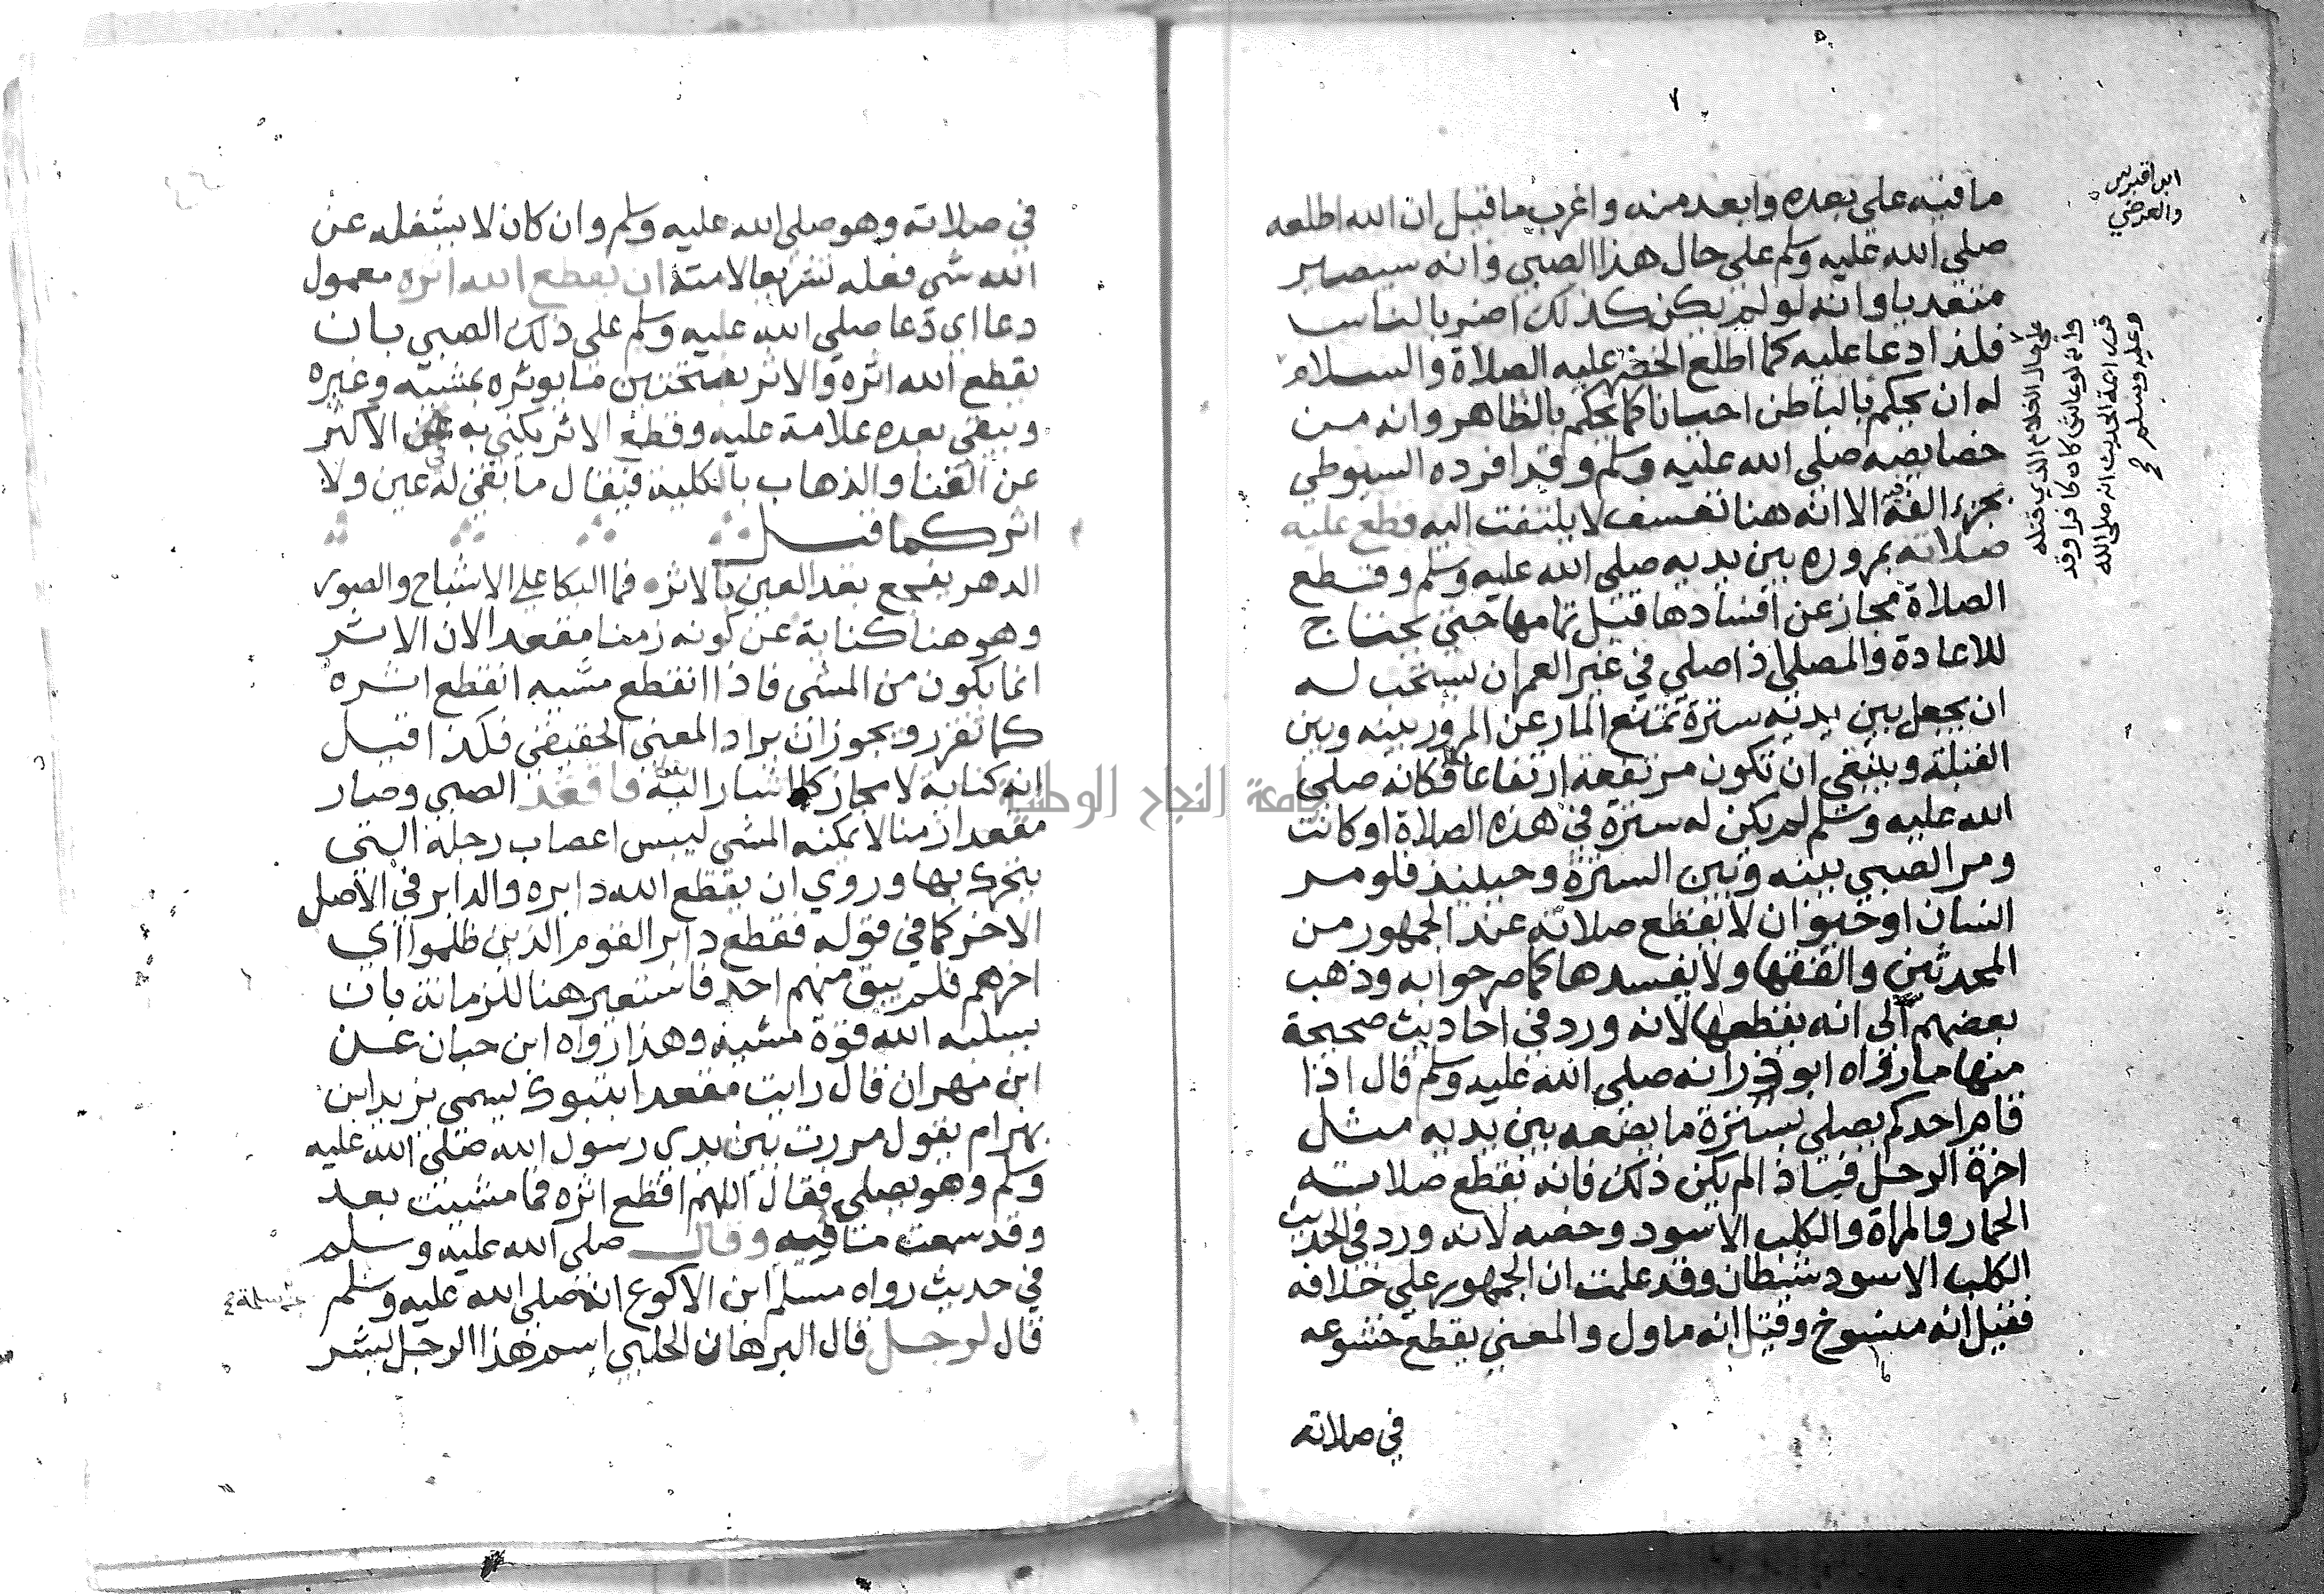 ما فيه على بعده وابعد منه واغرب ما قيل ان الله اطلعه
صلى الله عليه وسلم على حال هذا الصبي وانه سيصير
متعديا وانه لو لم يكن كذلك اضر بالناس
فلذا دعا عليه كما اطلع الخضر عليه الصلاة والسلام
له ان يحكم بالباطن احيانا كما يحكم بالظاهر وانه من
خصايصه صلى الله عليه وسلم وقد افرده السيوطي
بجزء الفه فيه الا انه هنا تعسف لا يلتفت اليه قطع عليه
صلاته بمروره بين يديه صلى الله عليه وسلم وقطع
الصلاة مجاز عن افسادها قبل تمامها حتى يحتاج
للاعادة والمصلى اذا صلى في غير العمران يستحب له
ان يجعل بين يديه سترة تمنع المار عن المرور بينه وبين
القبلة وينبغي ان تكون مرتفعة ارتفاعا فكانه صلى
الله عليه وسلم لم يكن له سترة في هذه الصلاة او كانت
ومر الصبي بينه وبين السترة وحينيذ فلو مر
انسان او حيوان لا يقطع صلاته عند الجمهور من
المحدثين والفقها ولا يفسدها كما صرحوا به وذهب
بعضهم الى انه يقطعها لانه ورد في احاديث صحيحة
منها ما رواه ابو ذر انه صلى الله عليه وسلم قال اذا
قام احدكم يصلي يستره ما يضعه بين يديه مثل
اخرة الرحل فاذا لم يكن ذلك فانه يقطع صلاته
الحمار والمراة والكلب الاسود وخصه لانه ورد في الحديث
الكلب الاسود شيطان وقد علمت ان الجمهور على خلافه
فقيل انه منسوخ وقيل انه ماول والمعنى يقطع خشوعه
في صلاته
ابن اقبرس
والعرضي
على حال الغلام الذي قتله
وانه لو عاش كان كافرا وقد
قرر ايمة الحديث انه صلى الله
عليه وسلم
في صلاته وهو صلى الله عليه وسلم وان كان لا يشغله عن
الله شي فعله تشريعا لامته ان يقطع الله اثره معمول
دعا اي دعا صلى الله عليه وسلم على ذلك الصبي بان
يقطع الله اثره والاثر بفتحتين ما يوثره بمشيه وغيره
ويبقى بعده علامة عليه وقطع الاثر يكنى به عن الاكثر
عن الفنا والذهاب بالكلية فيقال ما بقى له عين ولا
اثر كما قيل
الدهر يفجع بعد العين بالاثر فما البكا على الاشباح والصور
وهو هنا كناية عن كونه زمنا مقعد الان الاثر
انما يكون من المشى فاذا انقطع مشيه انقطع اثره
كما تقرر ويجوز ان يراد المعنى الحقيقي فلذا قيل
انه كناية لا مجاز كما اشار اليه فاقعد الصبي وصار
مقعدا زمنا لا يمكنه المشى ليبس اعصاب رجله التي
يتحرك بها وروي ان يقطع الله دابره والدابر في الاصل
الاخر كما في قوله فقطع دابر القوم الذين ظلموا اي
اخرهم فلم يبق منهم احد فاستعير هنا للزمانة بان
يسلبه الله قوة مشيه وهذا رواه ابن حبان عن
ابن مهران قال رايت مقعدا بتبوك يسمى يزيد ابن
بهرام يقول مررت بين يدى رسول الله صلى الله عليه
وسلم وهو يصلي فقال اللهم اقطع اثره فما مشيت بعد
وقد سمعت ما فيه وقال صلى الله عليه وسلم
في حديث رواه مسلم ابن الاكوع انه صلى الله عليه وسلم
قال لرجل قال البرهان الحلبي اسم هذا الرجل بشر
عن سلمة
جامعة النجاح الوطنية